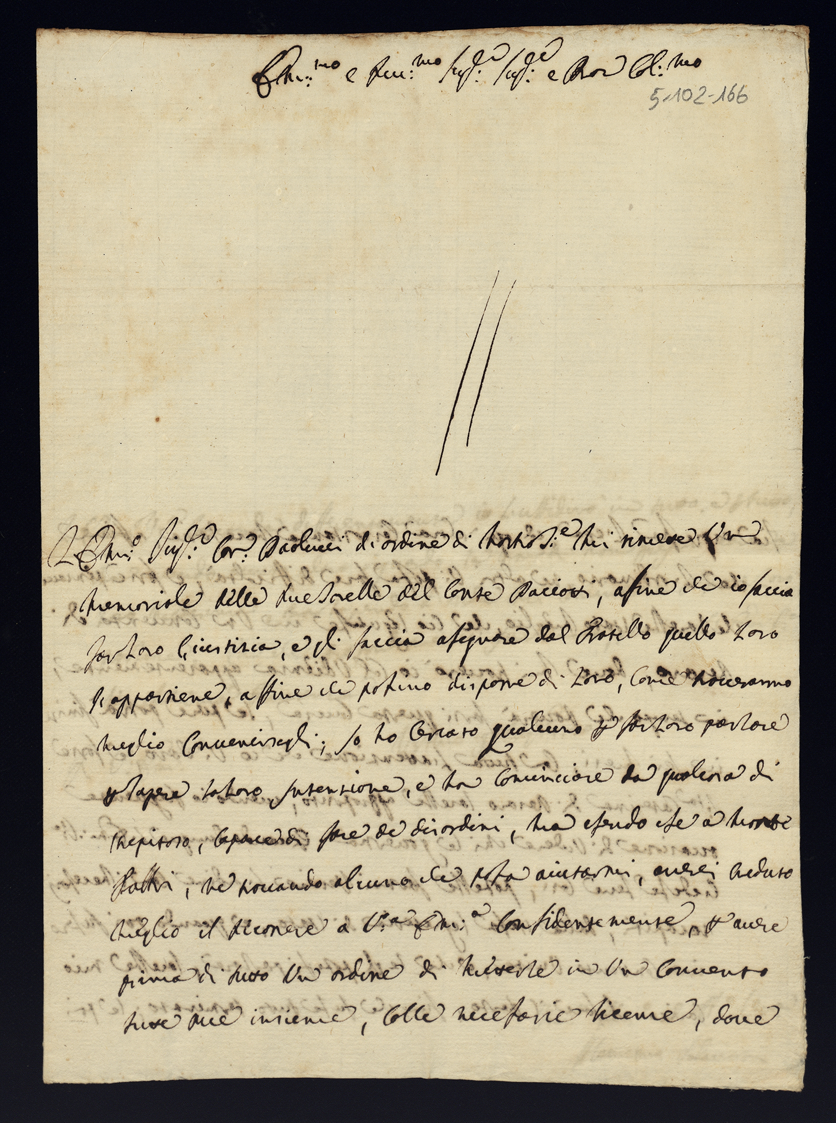 Em:mo e Rev:mo Sig:e Sig:e e Pron Col:mo
5-102-166
L'Em:o Sig:e Car: Paolucci di ordine di Nostro S:e mi rimese Un
memoriale delle due Sorelle del Conte Pacciotti, affine che io faccia
far loro Giustizia, e gli faccia assegnare dal Fratello quello Loro
s'appartiene, affine che possino disporre di Loro, come troveranno
meglio convenirsegli; Io ho cercato qualcuno p far loro parlare
p sapere la loro Intensione, e ha cominciare da qualcosa di
strepitoso, capace di fare de disordini, ma essendo esse a Monte
fallri, ne trovando alcuno che possa aiutarmi, averei creduto
meglio il ricorrere a V:a Em:a Confidentemente, p avere
prima di tuto Un ordine di metterle in Un Convento
tute due insieme, colle necessarie licenze, dove